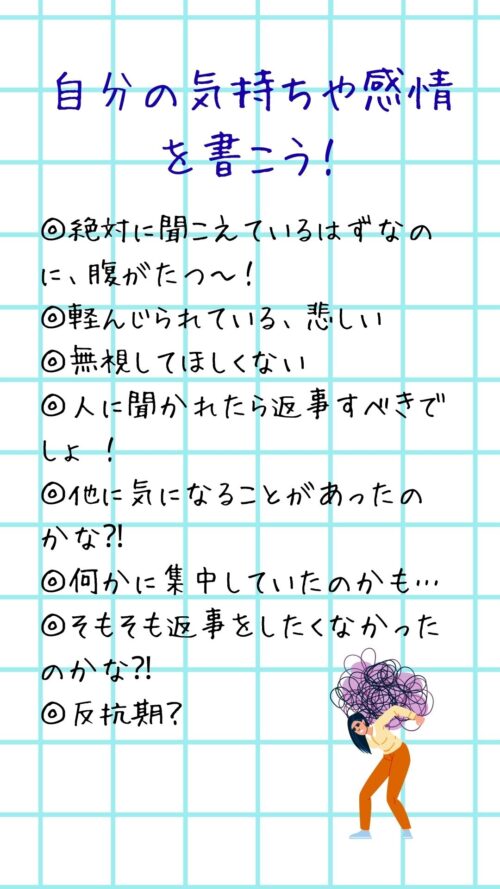 自分の気持ちや感情
を書こう!
◎絶対に聞こえているはずなの
に、腹がたつ〜!
◎軽んじられている、悲しい
◎無視してほしくない
◎人に聞かれたら返事すべきで
しょ!
◎他に気になることがあったの
かな?!
◎何かに集中していたのかも…
◎そもそも返事をしたくなかった
のかな?!
◎反抗期?